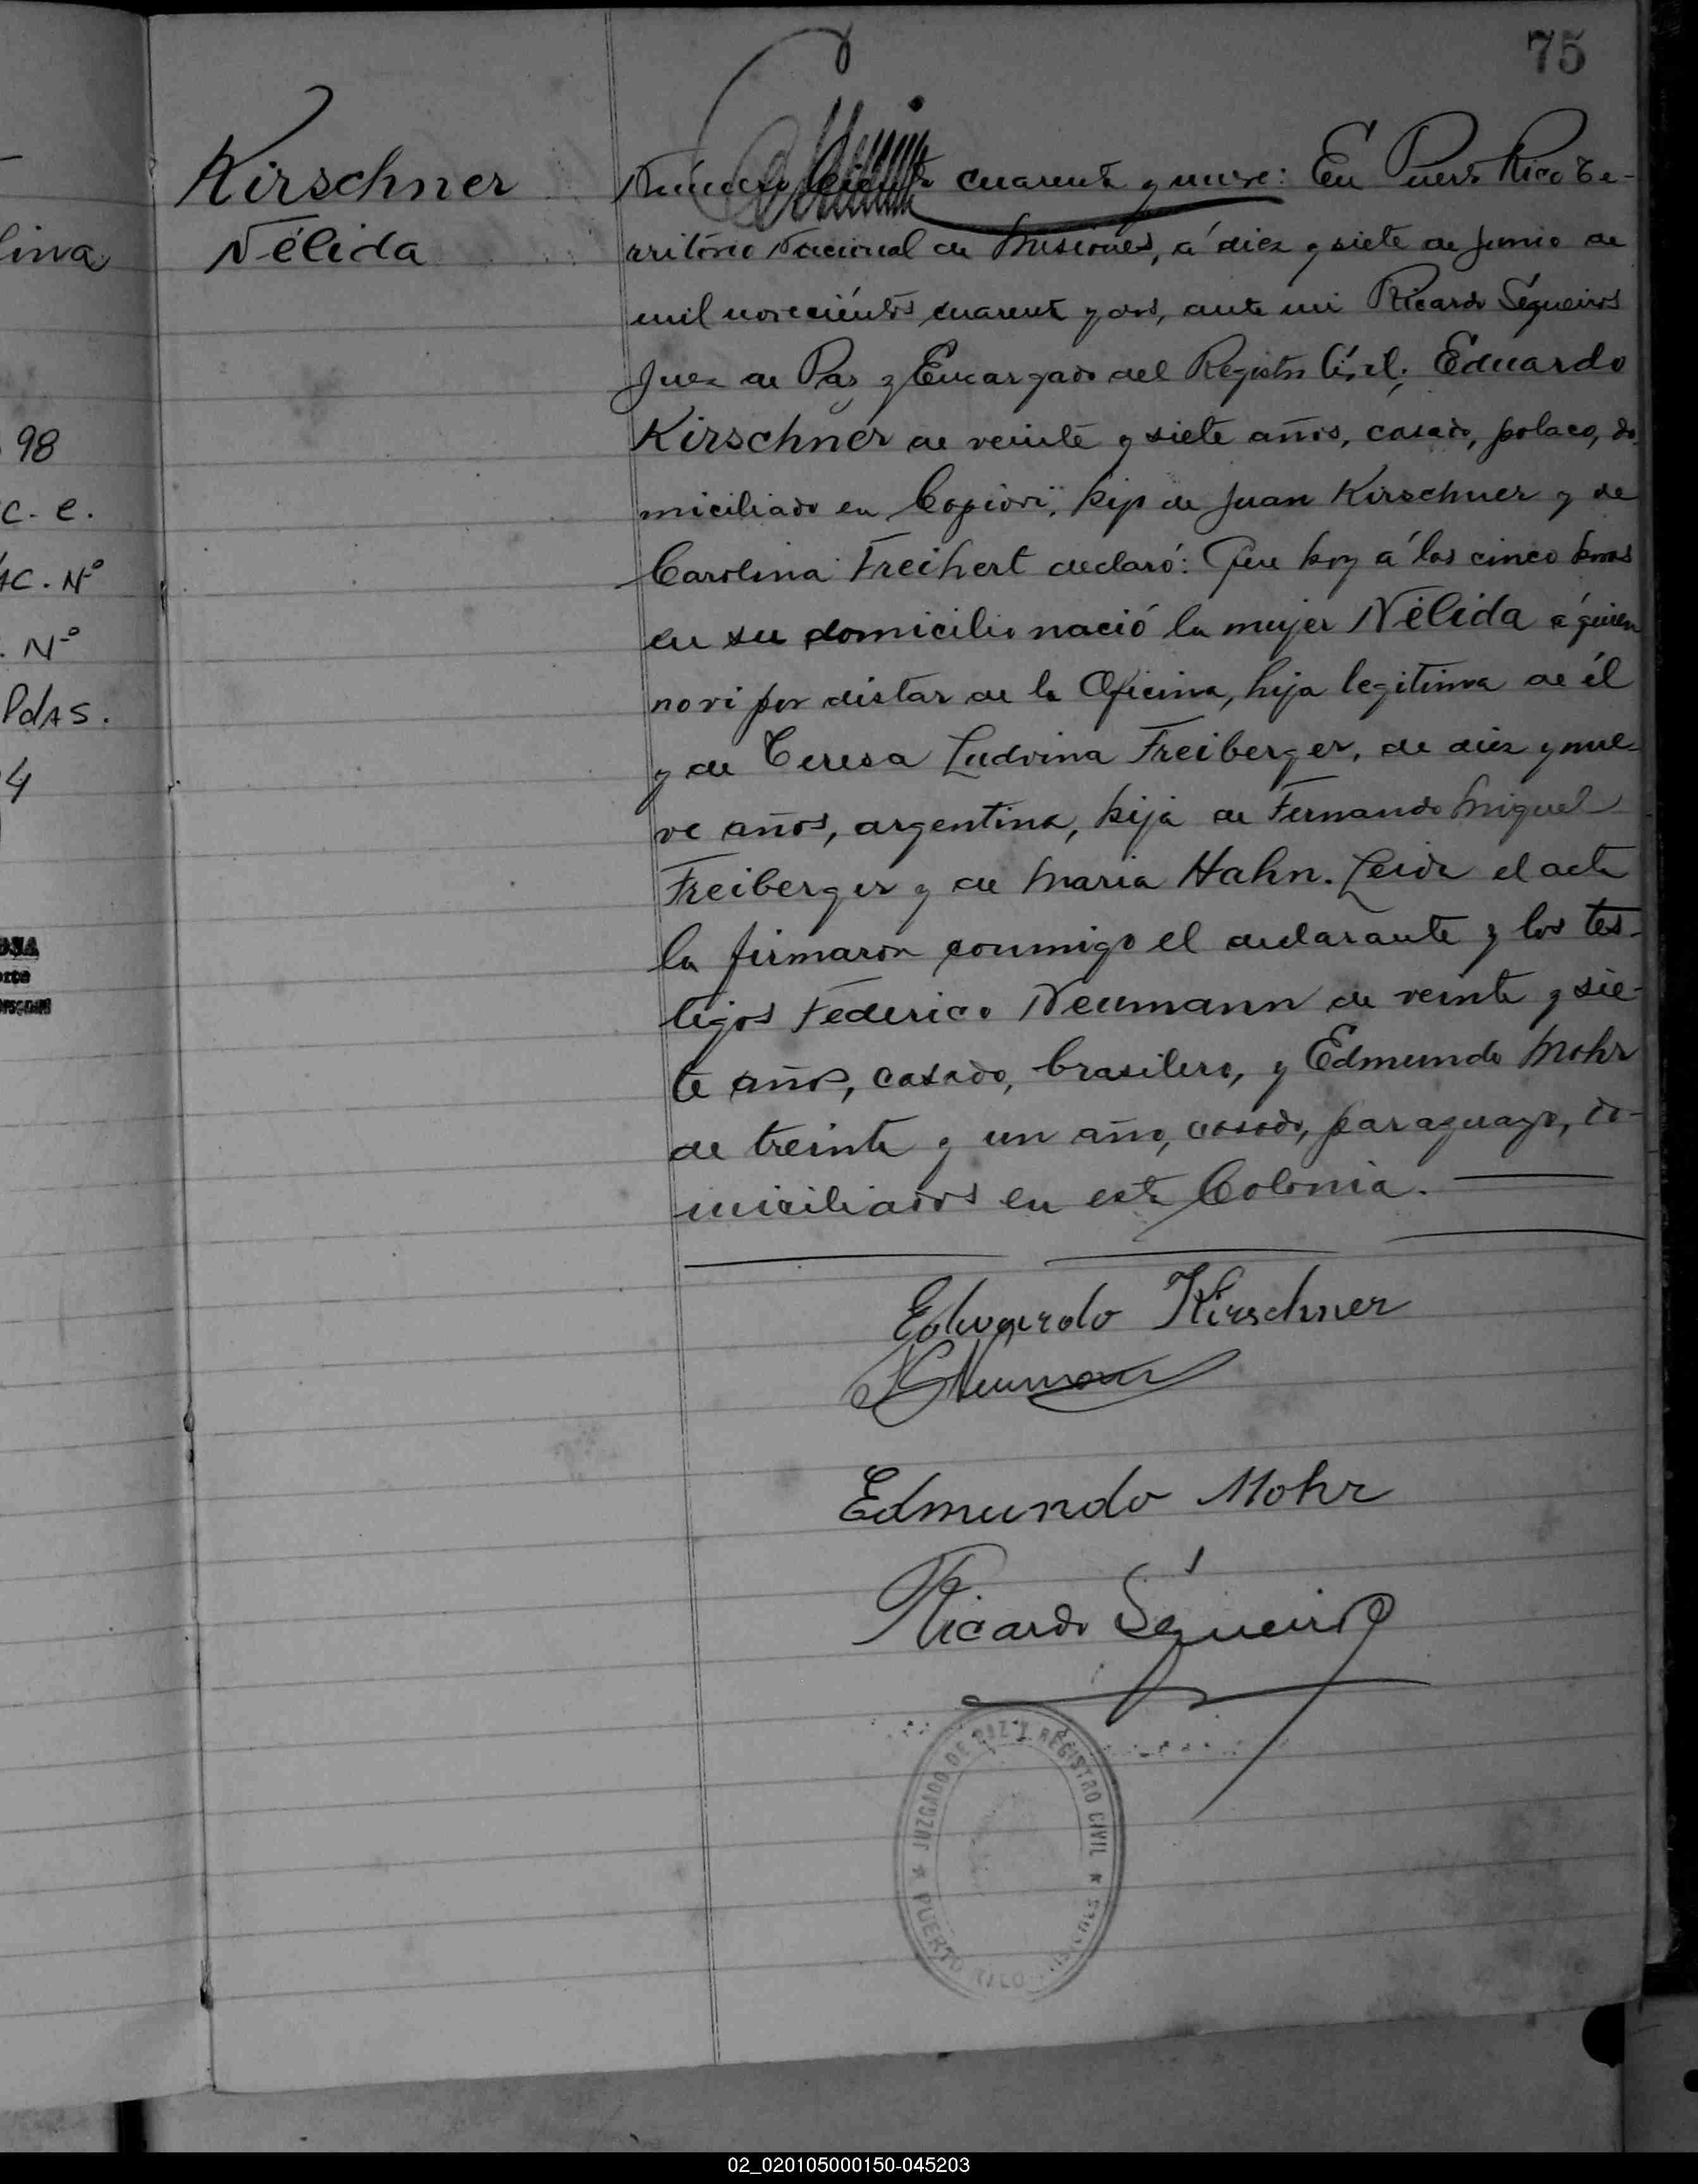 75
Kirschner
Nélida
lina
98
C. e.
AC. Nº
. Nº
PdAS.
4
Número ciento cuarenta y nueve: En Puerto Rico Te-
rritório Nacional de Misiones, á diez y siete de Junio de
mil novecientos cuarenta y dos, ante mi Ricardo Séqueiros
Juez de Paz y Encargado del Registro Civil; Eduardo
Kirschner de veinte y siete años, casado, polaco, do
miciliado en Capioví, hijo de Juan Kirschner y de
Carolina Freihert declaró: Que hoy á las cinco horas
en su domicilio nació la mujer Nélida á quien
no vi por distar de la Oficina, hija legitima de él
y de Teresa Ludvina Freiberger, de diez y nue-
ve años, argentina, hija de Fernando Miguel
Freiberger y de Maria Hahn. Leida el acta
la firmaron conmigo el declarante y los tes-
tigos Federico Neumann de veinte y sie-
te años, casado, brasilero, y Edmundo Mohr
de treinta y un año, casado, paraguayo, do-
miciliados en esta Colonia.
Eduardo Kirschner
Neumann
Edmundo Mohr
Ricardo Séqueiros
JUZGADO DE PAZ Y REGISTRO CIVIL * PUERTO RICO MISIONES *
02_020105000150-045203